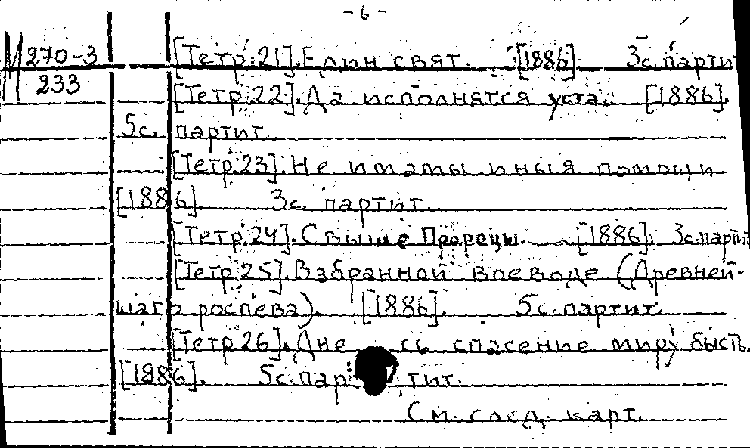 - 6 -
270-3 [Тетр.21]. Един свят. [1886]. 3с. партит.
233
[Тетр.22]. Да исполнятся уста. [1886].
5с. партит.
[Тетр.23]. Не имамы иныя помощи
[1886]. 3с. партит.
[Тетр.24]. Свыше Пророцы. [1886]. 3с. партит
[Тетр.25]. Взбранной воеводе (Древней-
шаго роспева). [1886]. 5с. партит.
[Тетр.26]. Дне сь спасение миру бысть.
[1886]. 5с. пар тит.
См. след. карт.